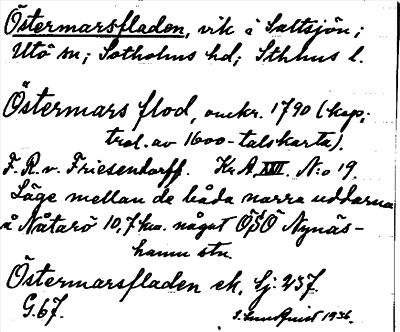 Östermarsfladen, vik i Saltsjön;
Utö sn; Sotholms hd; Sthlms l.
Östermars flod, omkr. 1790 (kop;
trol. av 1600-talskarta).
F. R. v. Friesendorff. Kr. A. XVII. N:o 19.
Läge mellan de båda norra uddarna
å Nåtarö 10,7 km. något ÖSÖ Nynäs-
hamn stn.
Östermarsfladen ek. bj. 237.
G. 67.
S. Lundqvist 1936.